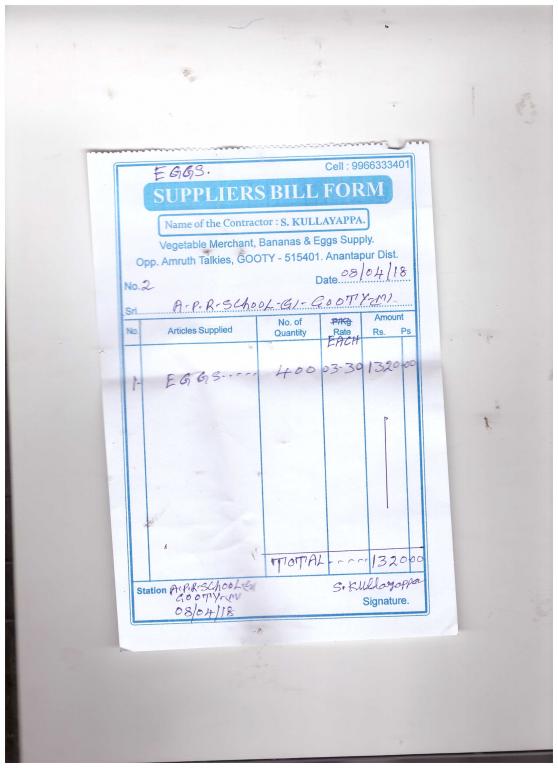 EGGS.
Cell : 9966333401
SUPPLIERS BILL FORM
Name of the Contractor : S. KULLAYAPPA.
Vegetable Merchant, Bananas & Eggs Supply.
Opp. Amruth Talkies, GOOTY - 515401. Anantapur Dist.
No. 2 Date 08/04/18
Sri A-P-R-SCHOOL-G)-GOOTY-M).
No. Articles Supplied No. of Quantity Rate EACH Amount Rs. Ps
1- EGGS----- 400 03-30 1320-00
TOTAL ----- 1320-00
Station A-P-R-SCHOOL-G
GOOTY
08/04/18
S. Kullayappa
Signature.